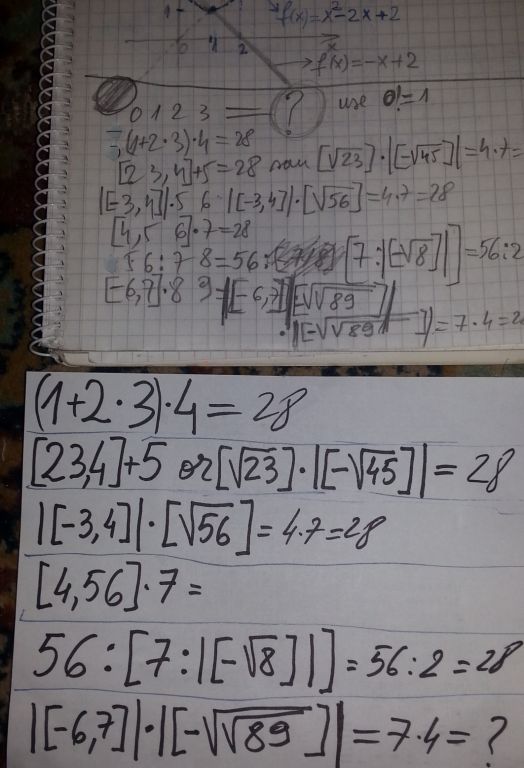 1
f(x)=x²-2x+2
0 1 2
x
f(x)=-x+2
0 1 2 3 = ? use 0!=1
(1+2·3)·4=28
[23,4]+5=28 или [√23]·|[-√45]|=4·7=
|[-3,4]|·5 6 |[-3,4]|·[√56]=4·7=28
[4,5 6]·7=28
56:7 8=56: [7:|[-√8]|]=56:2
[-6,7]·8 9=|[-6,7]|·|[-√√89]|
·|[-√√89]|=7·4=2
(1+2·3)·4=28
[23,4]+5 or [√23]·|[-√45]|=28
|[-3,4]|·[√56]=4·7=28
[4,56]·7=
56:[7:|[-√8]|]=56:2=28
|[-6,7]|·|[-√√89]|=7·4=?